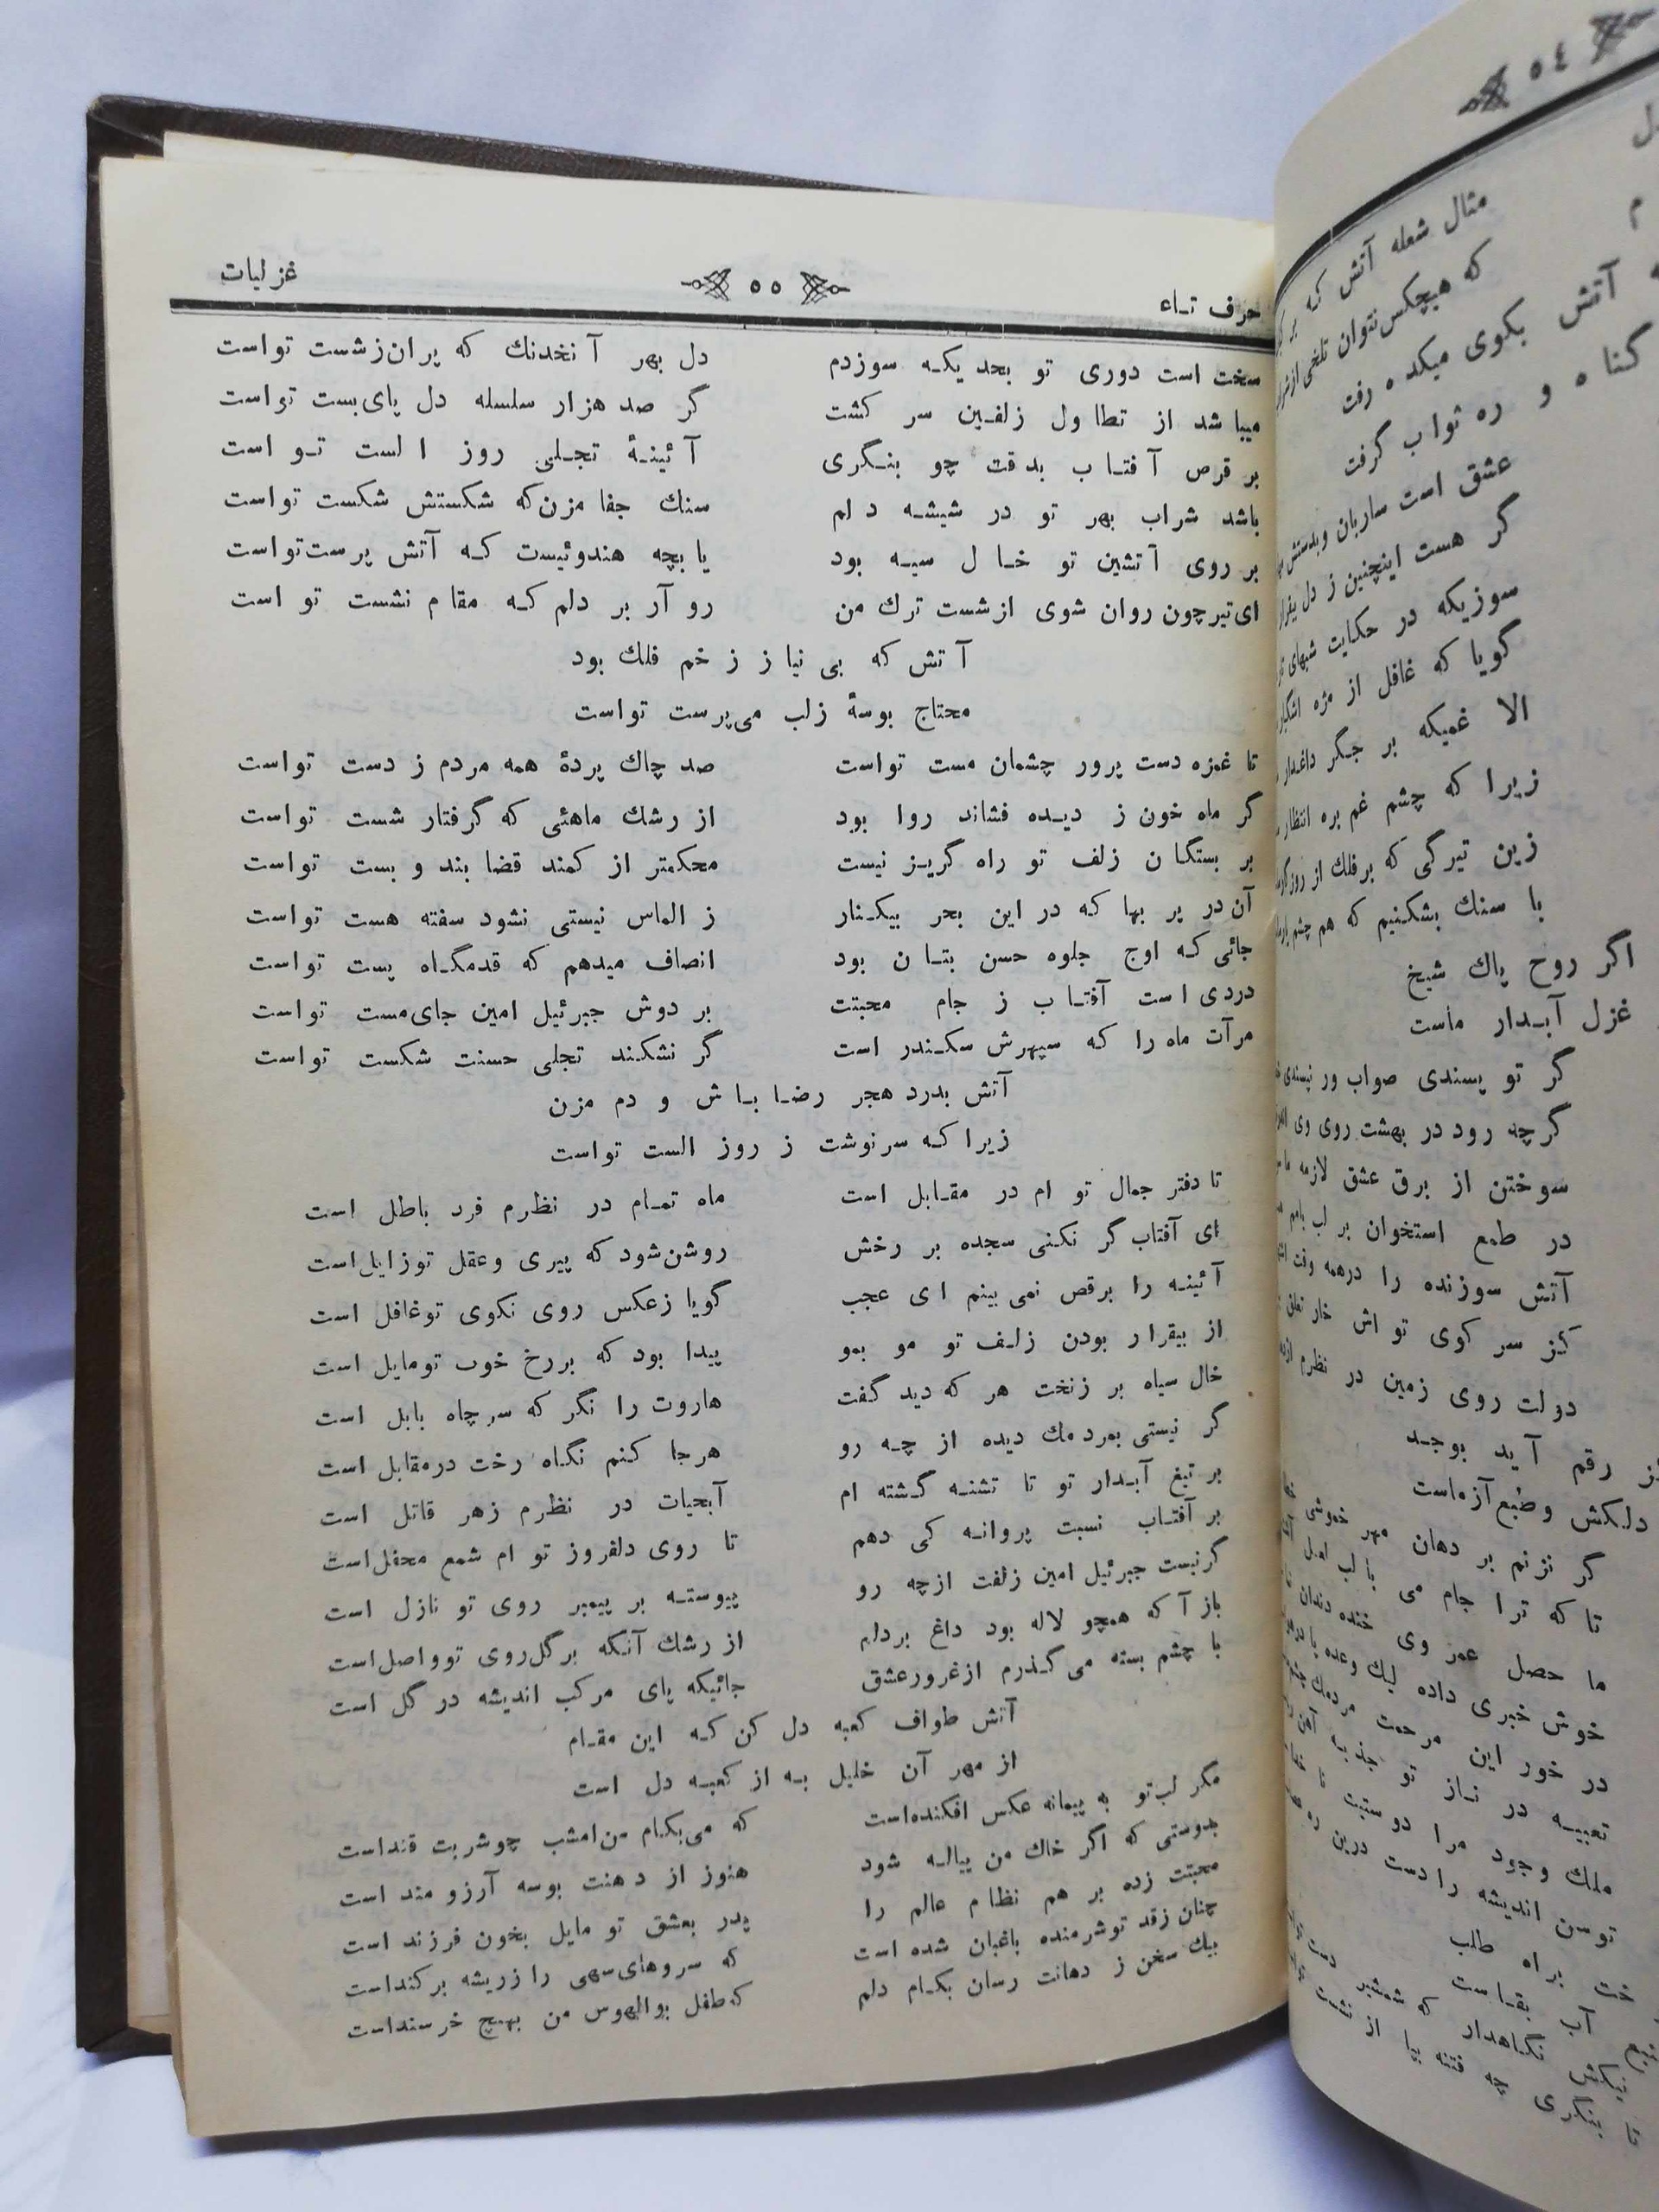 حرف تاء ٥٥ غزلیات
سخت است دوری تو بحدیکه سوزدم دل بهر آنخدنك که پران زشست تواست
میباشد از تطاول زلفین سر کشت گر صد هزار سلسله دل پای بست تواست
بر قرص آفتاب بدقت چو بنگری آئینهٔ تجلی روز الست تو است
باشد شراب بهر تو در شیشه دلم سنك جفا مزن که شکستش شکست تواست
بر روی آتشین تو خال سیه بود یا بچه هندوئیست که آتش پرست تواست
ای تیر چون روان شوی از شست ترك من رو آر بر دلم که مقام نشست تو است
آتش که بی نیاز ز خم فلك بود
محتاج بوسهٔ زلب می پرست تواست
تا غمزه دست پرور چشمان مست تواست صد چاك پردهٔ همه مردم ز دست تواست
گر ماه خون ز دیده فشاند روا بود از رشك ماهئی که گرفتار شست تواست
بر بستگان زلف تو راه گریز نیست محکمتر از کمند قضا بند و بست تواست
آن در پر بها که در این بحر بیکنار ز الماس نیستی نشود سفته هست تواست
جائی که اوج جلوه حسن بتان بود انصاف میدهم که قدمگاه پست تواست
دردی است آفتاب ز جام محبتت بر دوش جبرئیل امین جای مست تواست
مرآت ماه را که سپهرش سکندر است گر نشکند تجلی حسنت شکست تواست
آتش بدرد هجر رضا باش و دم مزن
زیرا که سرنوشت ز روز الست تواست
تا دفتر جمال تو ام در مقابل است ماه تمام در نظرم فرد باطل است
ای آفتاب گر نکنی سجده بر رخش روشن شود که پیری و عقل تو زایل است
آئینه را برقص نمی بینم ای عجب گویا زعکس روی نکوی تو غافل است
از بیقرار بودن زلف تو مو بمو پیدا بود که بر رخ خوب تو مایل است
خال سیاه بر زنخت هر که دید گفت هاروت را نگر که سر چاه بابل است
گر نیستی بمردمك دیده از چه رو هر جا کنم نگاه رخت در مقابل است
بر تیغ آبدار تو تا تشنه گشته ام آبحیات در نظرم زهر قاتل است
بر آفتاب نسبت پروانه کی دهم تا روی دلفروز تو ام شمع محفل است
گر نیست جبرئیل امین زلفت ازچه رو پیوسته بر پیمبر روی تو نازل است
باز آ که همچو لاله بود داغ بر دلم از رشك آنکه بر گل روی تو واصل است
با چشم بسته می گذرم از غرور عشق جائیکه پای مرکب اندیشه در گل است
آتش طواف کعبه دل کن که این مقام
از مهر آن خلیل به از کعبه دل است
مگر لب تو به پیمانه عکس افکنده است که می بکام من امشب چو شربت قنداست
بدوستی که اگر خاك من پیاله شود هنوز از دهنت بوسه آرزو مند است
محبتت زده بر هم نظام عالم را پدر بعشق تو مایل بخون فرزند است
چنان زقد تو شرمنده باغبان شده است که سروهای سهی را زریشه بر کنداست
بیك سخن ز دهانت رسان بکام دلم که طفل بوالهوس من بهیچ خرسنداست
٥٤
مثال شعله آتش که
که هیچکس نتوان تلخی از
آتش بکوی میکده رفت
گناه و ره ثواب گرفت
عشق است ساربان و بدستش
گر هست اینچنین ز دل
سوزیکه در حکایت شبهای
گویا که غافل از مژه
الا غمیکه بر جگر داغدار
زیرا که چشم غم بره انتظار
زین تیرگی که بر فلك از
با سنك بشکنیم که هم چشم
اگر روح پاك شیخ
غزل آبدار ماست
گر تو پسندی صواب ور نپسندی
گرچه رود در بهشت روی وی
سوختن از برق عشق لازمه
در طمع استخوان بر لب بامم
آتش سوزنده را درهمه وقت
کز سر کوی تو اش خار
دولت روی زمین در نظرم
رقم آید بوجد
دلکش و طبع آزماست
گر نزنم بر دهان مهر خموشی
تا که ترا جام می با لب لعل
ما حصل عمر وی خنده دندان
خوش خبری داده لیك وعده
در خور این مرحمت مردمك
تعبیه در ناز تو جذبه
ملك وجود مرا دوستیت تا
توسن اندیشه را دست درین ره
براه طلب
آب بقاست
که شمشیر
نگاهدار
تا بنگری چه فتنه بپا از نشست